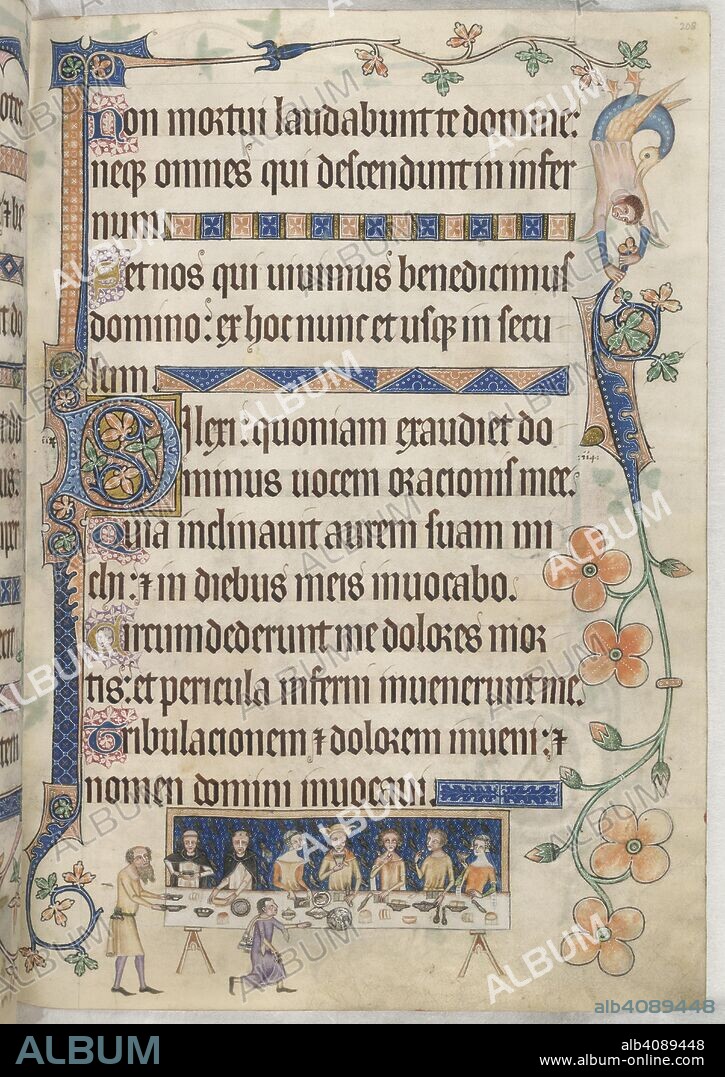 208
Non mortui laudabunt te domine:
neqꝫ omnes qui descendunt in infer
num.
Set nos qui uiuimus benedicimus
domino: ex hoc nunc et usqꝫ in secu
lum.
Dilexi: quoniam exaudiet do
minus uocem oracionis mee.
Quia inclinauit aurem suam mi
chi: ⁊ in diebus meis inuocabo.
Circumdederunt me dolores mor
tis: et pericula inferni inuenerunt me.
Tribulacionem ⁊ dolorem inueni: ⁊
nomen domini inuocaui.
:114:
ALBUM
alb4089448
ALBUM
alb4089448
www.album-online.com